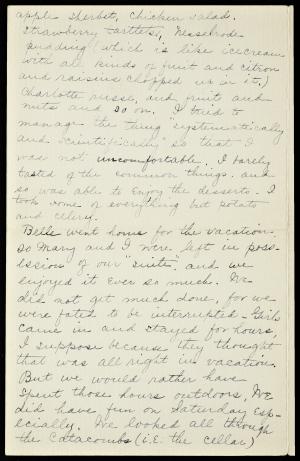 apple sherbet, chicken salad.
Strawberry tartlets, Nesselrode
pudding (which is like icecream
with all kinds of fruit and citron
and raisins chopped up in it.)
Charlotte russe, and fruit and
nuts and so on. I tried to
manage the thing "systematically
and scientifically" so that I
was not uncomfortable. I barely
tasted of the common things and
so was able to enjoy the desserts. I
took some of everything but potato
and celery.
Belle went home for the vacation.
So Mary and I were left in poss-
lession of our "suite", and we
enjoyed it ever so much. We
did not get much done, for we
were fated to be interrupted - Girls
came in and stayed for hours,
I suppose because they thought
that was all right in vacation.
But we would rather have
spent those hours outdoors. We
did have fun on Saturday esp-
ecially. We looked all through
the Catacombs (i.e. the cellar)